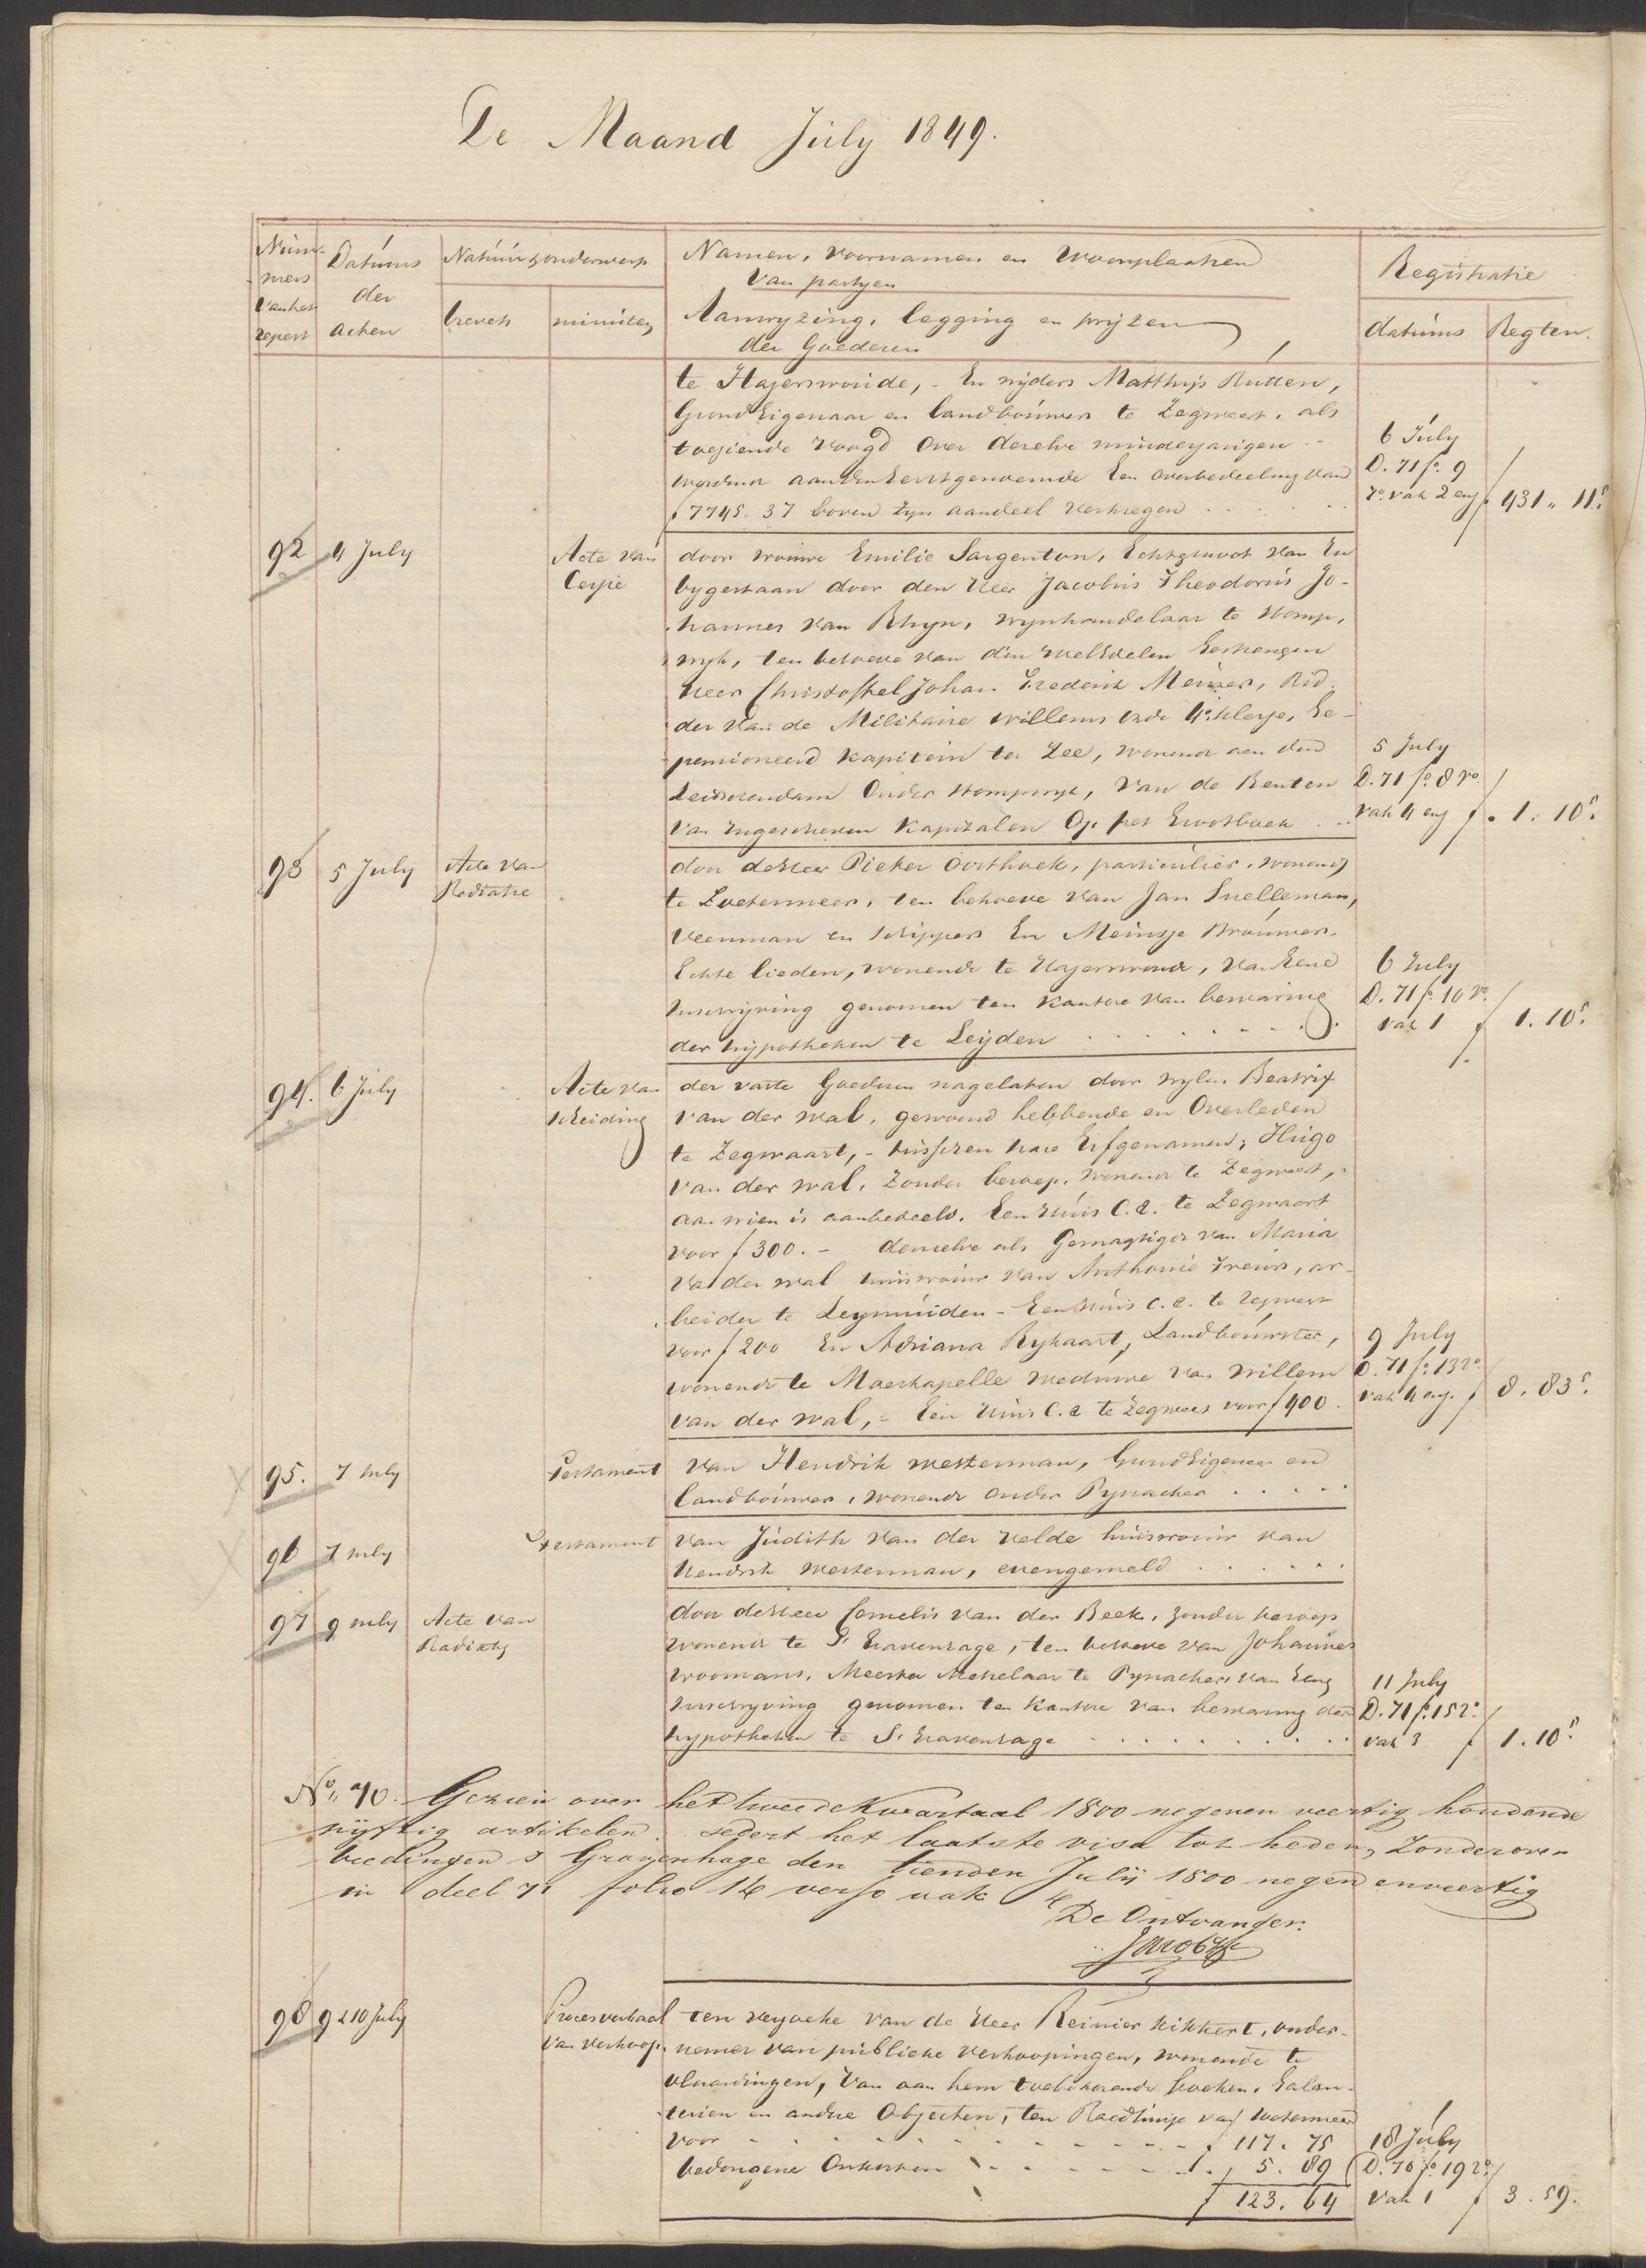 De Maand July 1849.
Num-
mers
van het
repert
Datums
der
acten
Natuur & onderwerp
brevets
minuten
Namen, voornamen en Woonplaatsen
van partyen
Aanwyzing, legging en pryzen
der Goederen
Registratie
datums
Regten.
te Hazerswoude, - En wyders Matthys Rutten,
Grond Eigenaar en landbouwer te Zegwaart, als
toeziende Voogd over dezelve minderjarigen --
wordende aan den Eerstgenoemde Een overbedeeling van
ƒ 7745. 37 boven zyn aandeel verkregen
6 July
D. 71 fo. 9
ro. vak 2 env ƒ 431 " 11 5.
92
4 July
Acte van
Cessie
door vrouwe Emilie Sargenton, Echtgenoot van En
bygestaan door den Heer Jacobus Theodorus Jo-
hannes van Rhyn, wynhandelaar te Stomp-
wyk, ten behoeve van den WelEdelen Gestrengen
Heer Christoffel Johan Frederik Meijer, Rid-
der van de Militaire Willems orde 4e. klasse, Ge-
pensioneerd Kapitein ter Zee, wonende aan den
Leidschendam onder Stompwyk, van de Renten
van Ingeschreven Kapitalen Op het Grootboek
5 July
D. 71 fo. 8 vo
vak 4 env ƒ . 1. 10 5.
93
5 July
Acte van
Radiatie
door de Heer Pieter Oosthoek, particulier, wonende
te Zoetermeer, ten behoeve van Jan Snelleman,
Veenman en schipper En Meinsje Brouwer,
Echte lieden, wonende te Hazerswoude, van Eene
Inschryving genomen ten kantore van bewaring
der hypotheken te Leijden
6 July
D. 71 fo. 10 vo.
vak 1 ƒ 1. 10 5.
94.
6 July
Acte van
scheiding
der vaste Goederen nagelaten door wylen Beatrix
van der Wal, gewoond hebbende en Overleden
te Zegwaart, - tusschen hare Erfgenamen, Hugo
van der Wal, zonder beroep, wonende te Zegwaart,
aan wien is aanbedeeld. Een Huis C.A. te Zegwaart
voor ƒ 300. - dezelve als Gemagtigde van Maria
van der Wal huisvrouw van Anthonie Treurs, ar-
beider te Leymuiden - Een Huis c.a. te Zegwaart
voor ƒ 200 En Adriana Rykaart, Landbouwster,
wonende te Moerkapelle weduwe van Willem
van der Wal, - Een Huis C.a te Zegwaart voor ƒ 400.
9 July
D. 71 fo. 13 vo
vak 4 env. ƒ 8. 83 5.
95.
7 July
Testament
van Hendrik Westerman, GrondEigenaar en
landbouwer, wonende onder Pynacker
96
7 July
Testament
van Judith van der Velde huisvrouw van
Hendrik Westerman, evengemeld
97
9 July
Acte van
Radiatie
door de Heer Cornelis van der Beek, zonder beroep
wonende te S' Gravenhage, ten behoeve van Johannes
Woomans, Meester Metselaar te Pynacker van Eene
Inschryving genomen ten Kantore van bewaring der
hypotheken te S' Gravenhage
11 July
D. 71 fo. 15 vo.
vak 3 ƒ 1. 10 5.
No. 70. Gezien over het tweede Kwartaal 1800 negenen veertig houdende
vyftig artikelen sedert het laatste visa tot heden, zonder over
breedingen s Gravenhage den tienden Julij 1800 negen en veertig
in deel 71 folio 14 verso vak 4
De Ontvanger.
98
9 & 10 July
Proces verbaal
van verkoop.
ten verzoeke van de Heer Reinier Kikkert, onder-
nemer van publieke verkoopingen, wonende te
Vlaardingen, van aan hem toebehorende boeken, Galan-
terien en andere Objecten, ten Raadhuize van Zoetermeer
voor ƒ 117. 75
bedongene Onkosten ƒ 5. 89
ƒ 123. 64
18 July
D. 70 fo. 19 vo.
vak 1 ƒ 3. 59.